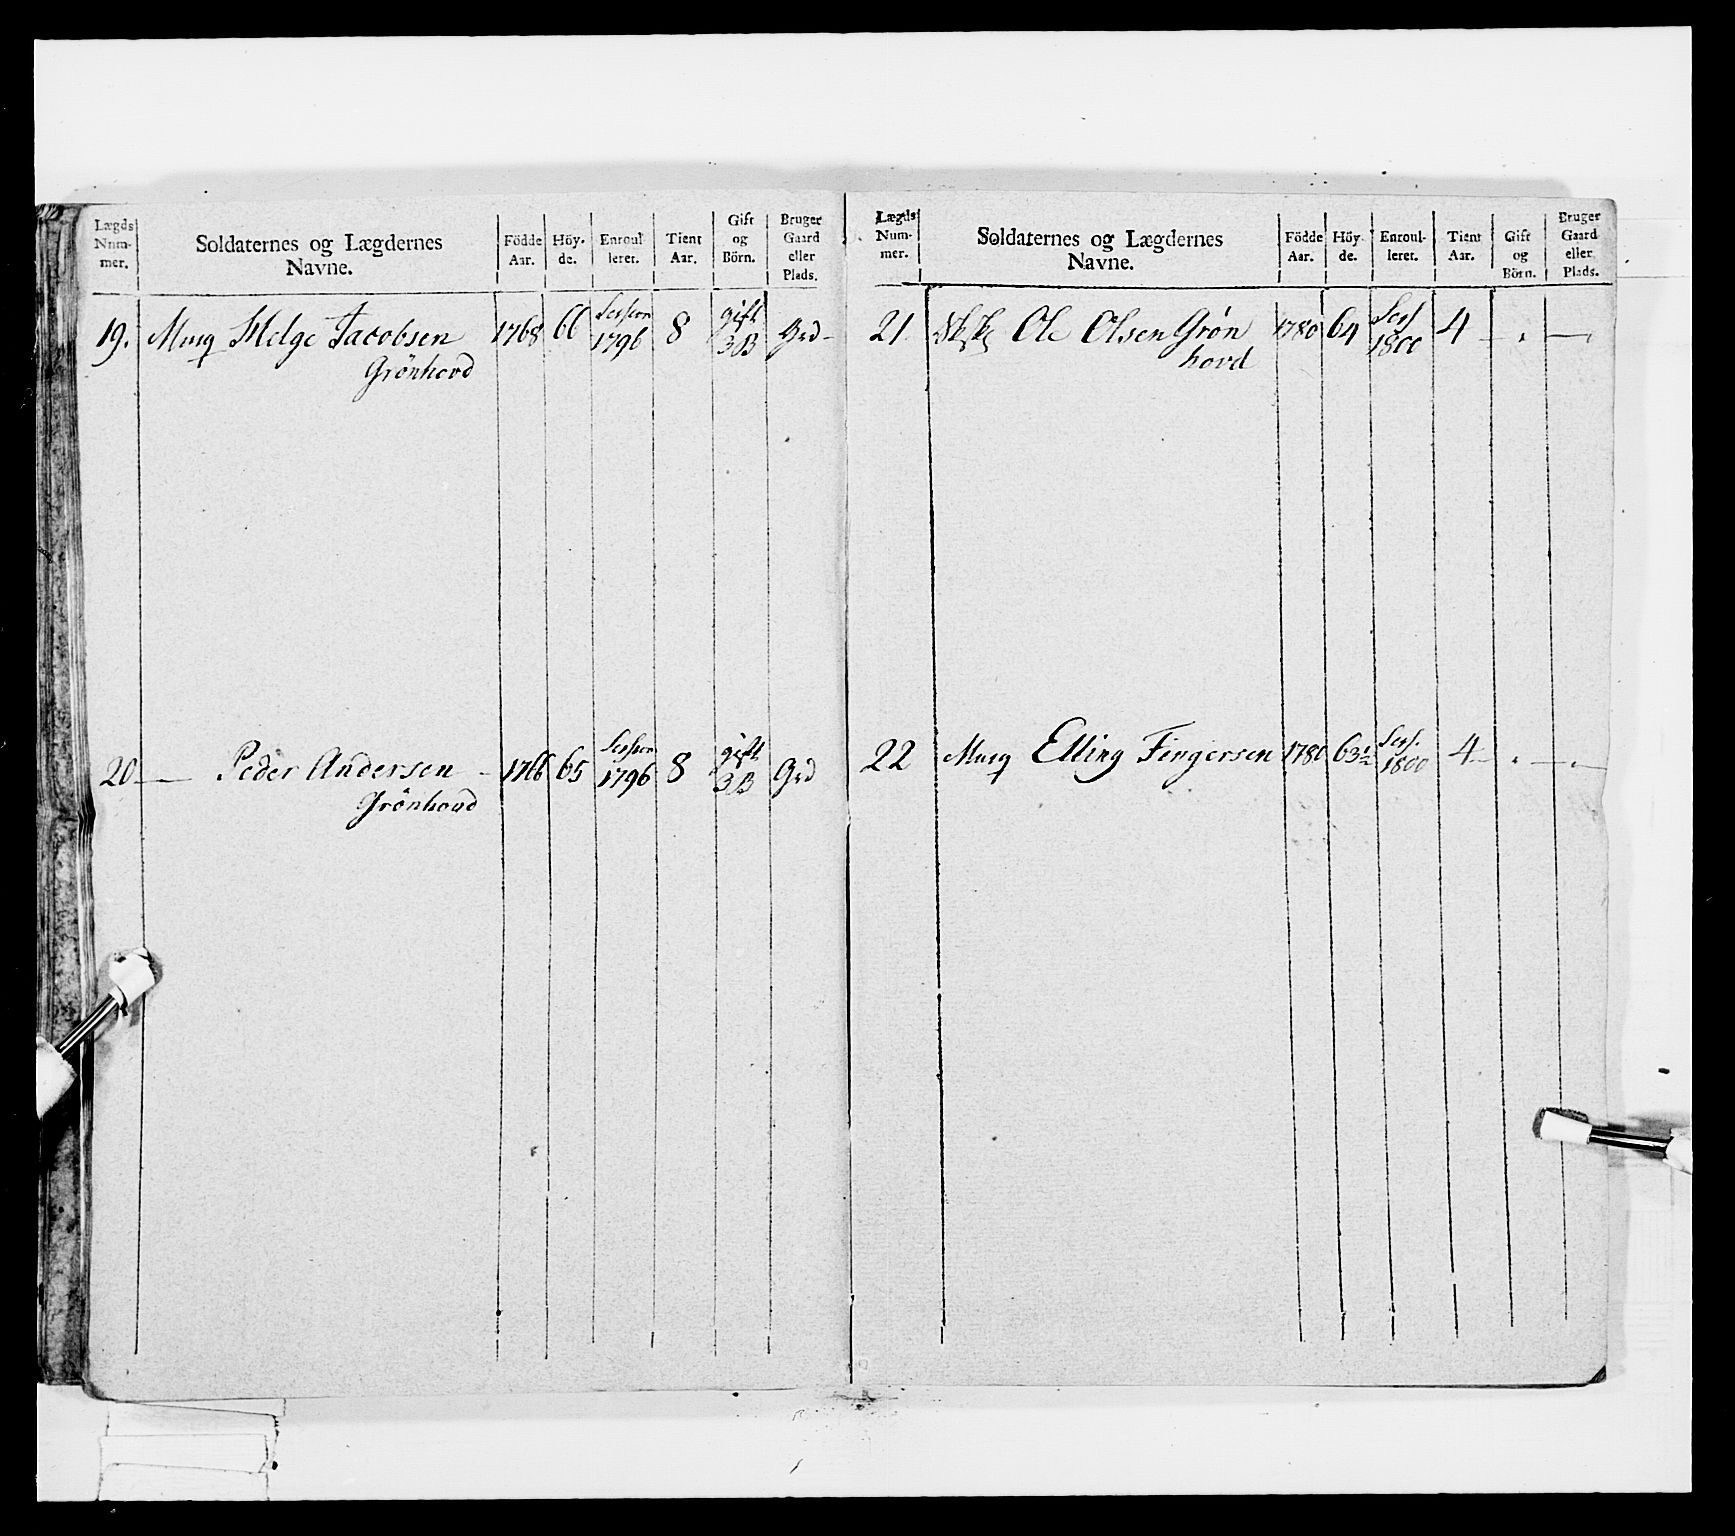 Lægds Num- mer.
Soldaternes og Lægdernes Navne.
Födde Aar.
Höy- de.
Enroul- leret.
Tient Aar.
Gift og Börn.
Bruger Gaard eller Plads.
19. Musq Helge Jacobsen 1768 66 Session 1796 8 gift 3 B Grd -
Grönhovd
20 — Peder Andersen - 1766 65 Session 1796 8 gift 3 B Grd
Grönhovd
Lægds Num- mer.
Soldaternes og Lægdernes Navne.
Födde Aar.
Höy- de.
Enroul- leret.
Tient Aar.
Gift og Börn.
Bruger Gaard eller Plads.
21 Ole Olsen Grøn 1780 64 Sess. 1800 4 — . —
hovd
22 Musq Elling Fingersen 1780 63½ Sess. 1800 4 — . — . —